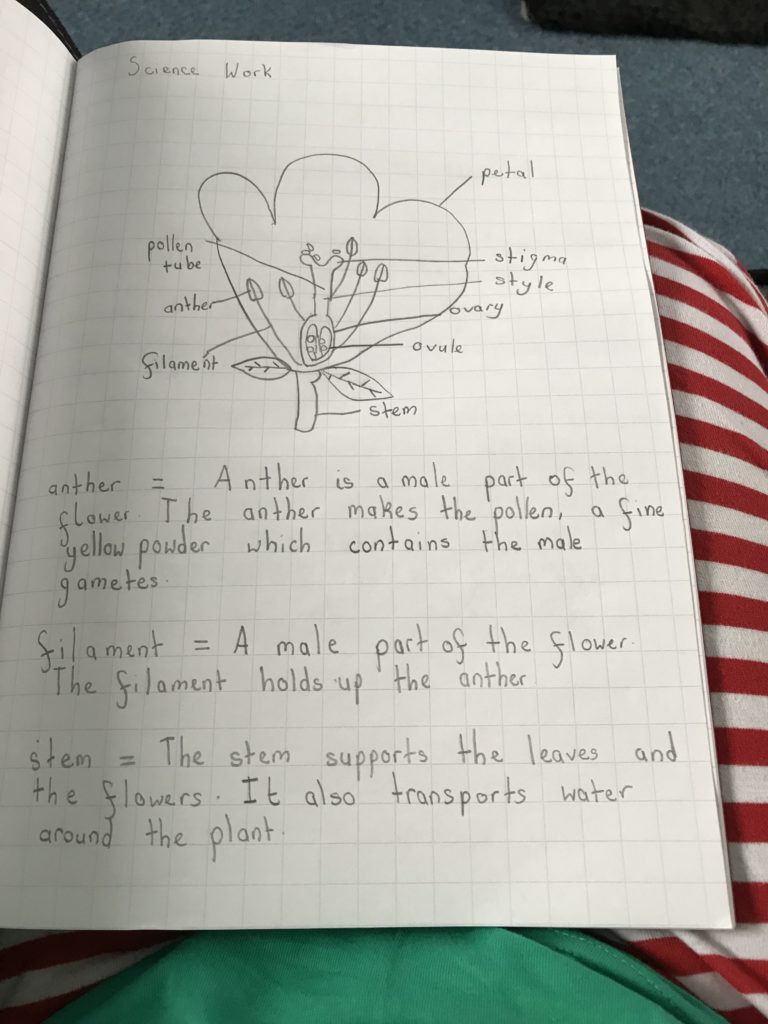 Science Work
petal
pollen
tube
stigma
style
anther
ovary
ovule
filament
stem
anther = Anther is a male part of the
flower. The anther makes the pollen, a fine
yellow powder which contains the male
gametes.
filament = A male part of the flower.
The filament holds up the anther
stem = The stem supports the leaves and
the flowers. It also transports water
around the plant.